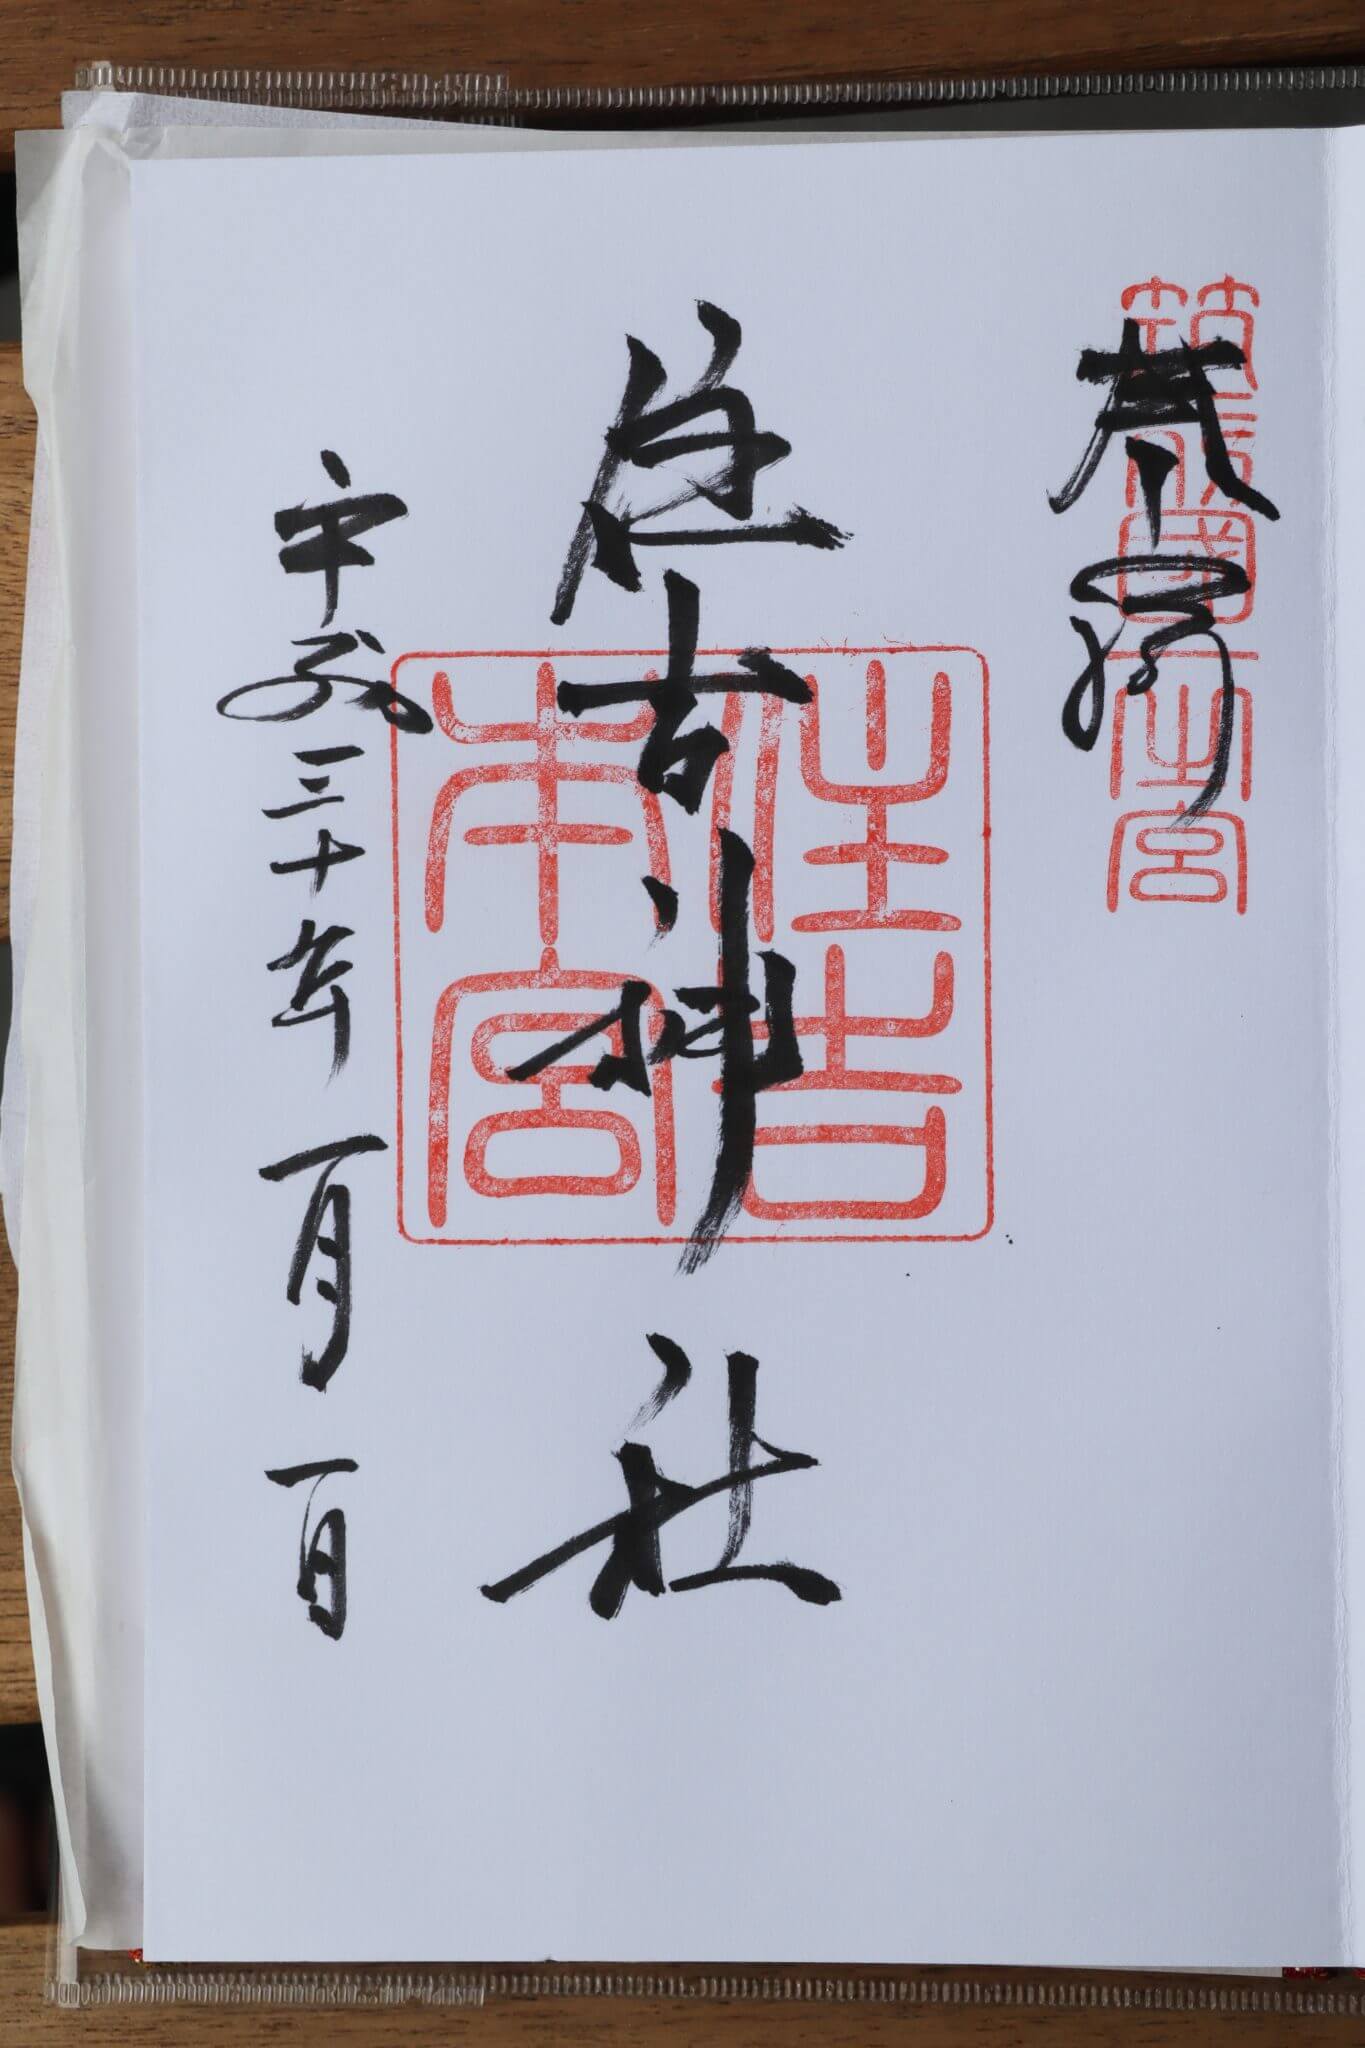 奉拝
筑前國一之宮
住吉神社
住吉
本宮
平成三十年一月一日